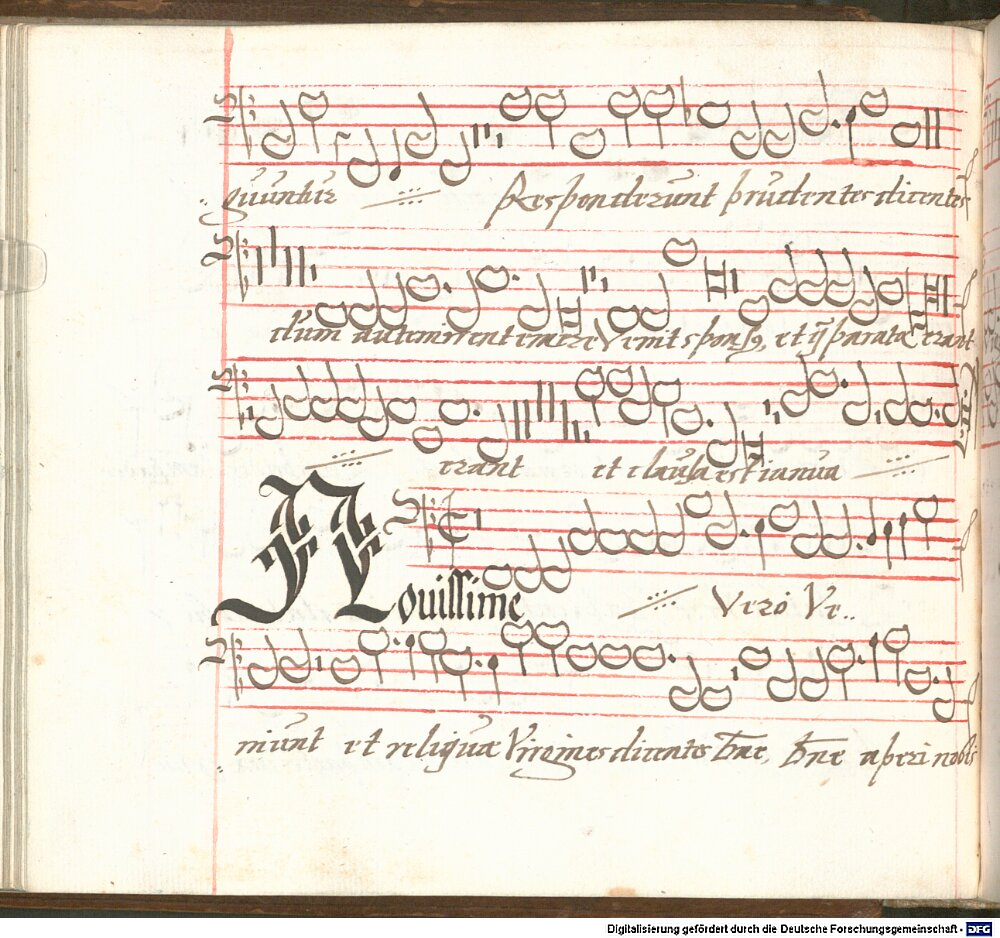 quuntur Responderunt prudentes dicentes
dum autem irent emere Venit spons9, et q̃ parata erant
erant et clausa est ianua
Nouissime Vero Ve..
niunt et reliquæ Virgines dicentes Dne, Dne aperi nobis
Digitalisierung gefördert durch die Deutsche Forschungsgemeinschaft - DFG